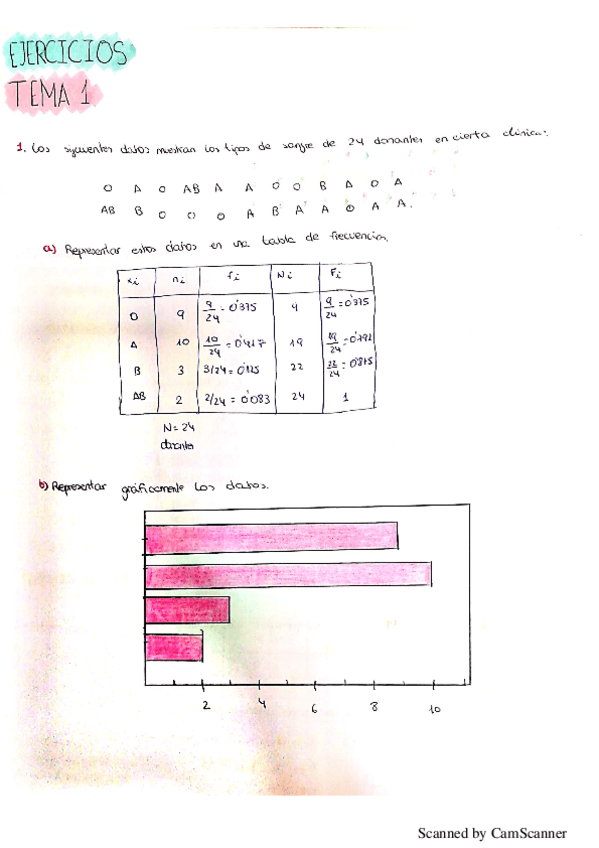 EJERCICIOS
TEMA 1
1. Los siguientes datos muestran los tipos de sangre de 24 donantes en cierta clínica:
O A O AB A A O O B A O A
AB B O O O A B A A O A A.
a) Representar estos datos en una tabla de frecuencia.
xi ni fi Ni Fi
O 9 9/24 = 0'375 9 9/24 = 0'375
A 10 10/24 = 0'417 19 19/24 = 0'792
B 3 3/24 = 0'125 22 22/24 = 0'875
AB 2 2/24 = 0'083 24 1
N = 24
donantes
b) Representar gráficamente los datos.
2 4 6 8 10
Scanned by CamScanner